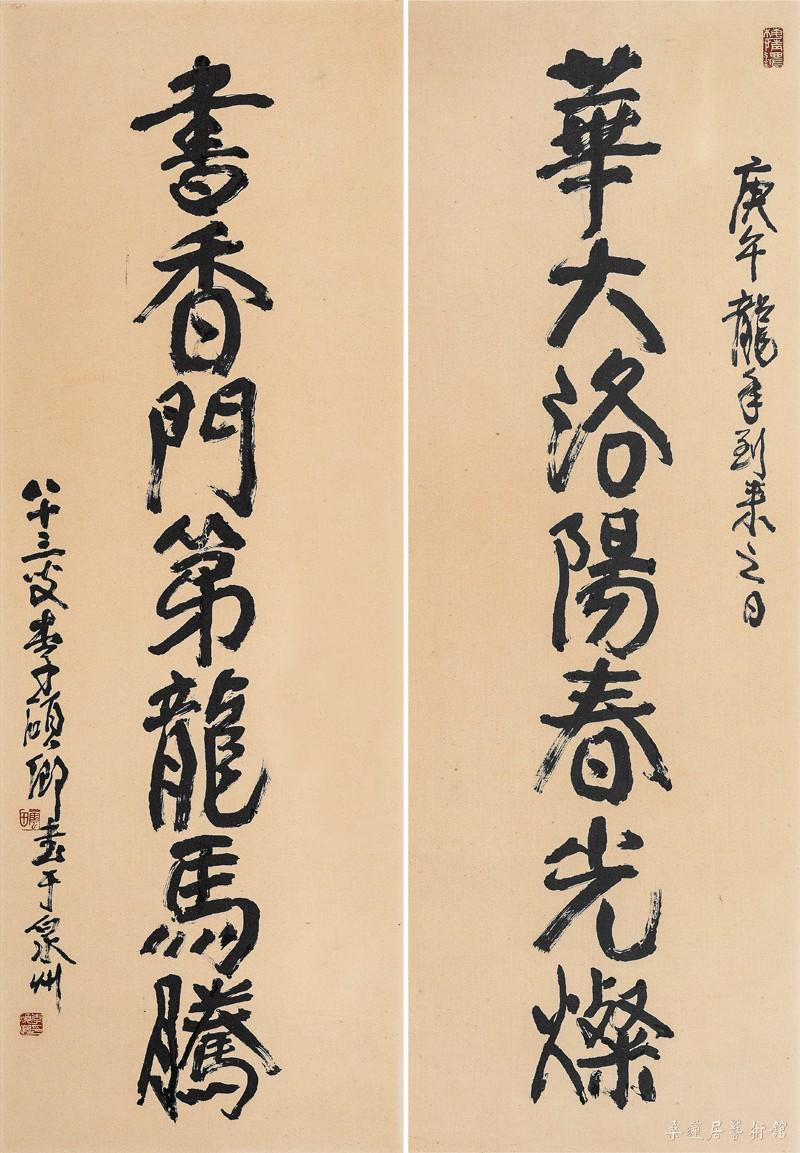 庚午龍年到来之日
華大洛陽春光燦
書香門第龍馬騰
八十三叟李碩卿書于泉州
桑蓮居藝術館